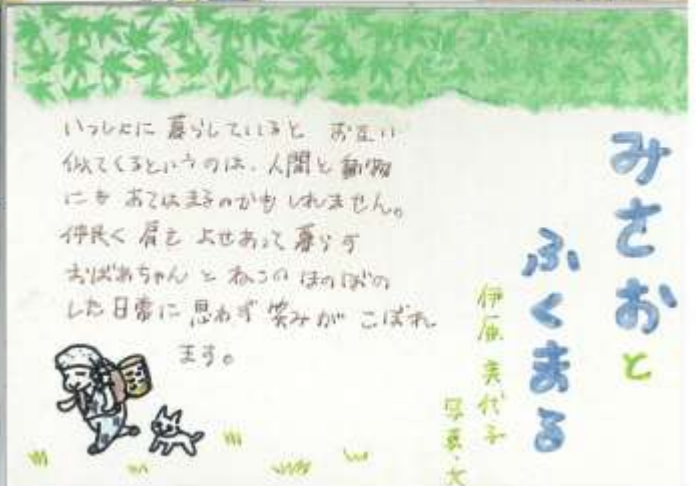 みさおと
ふくまる
伊原 美代子
写真・文
いっしょに 暮らしていると お互い
似てくるというのは、人間と動物
にも あてはまるのかもしれません。
仲良く 肩を よせあって 暮らす
おばあちゃん と ねこの ほのぼの
した日常に 思わず 笑みが こぼれ
ます。